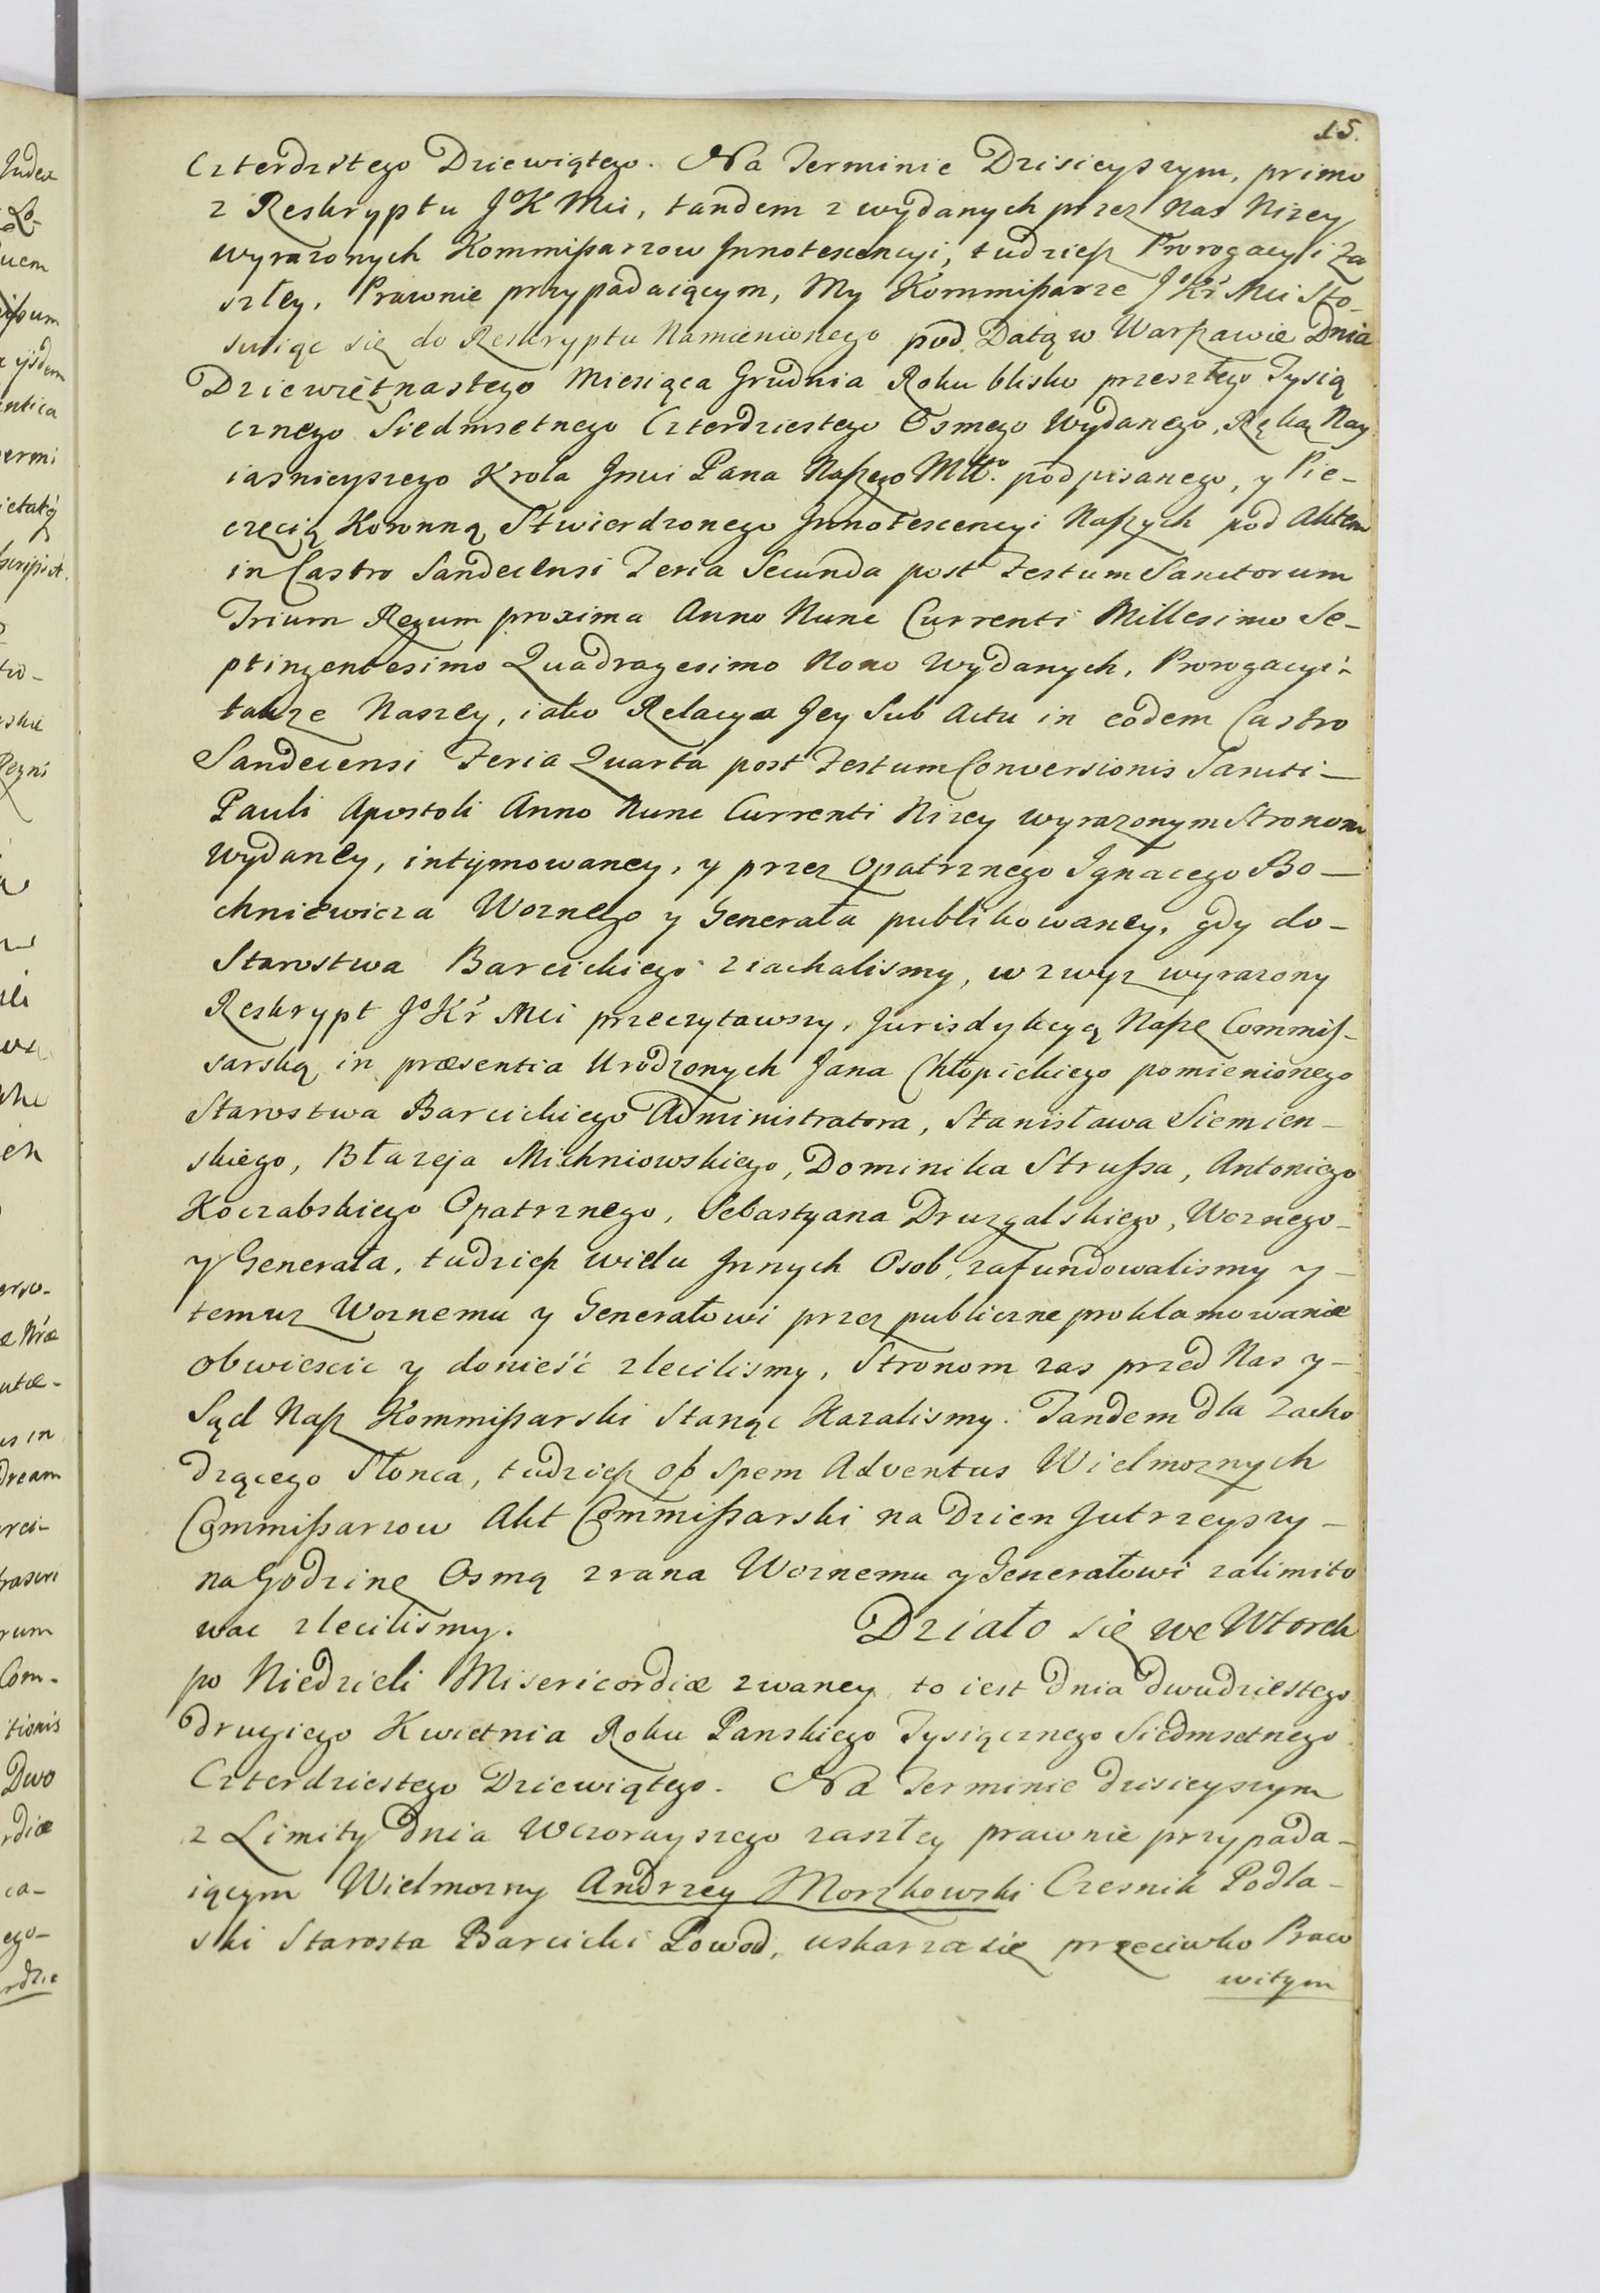 15.
Czterdztego Dziewiątego. Na Terminie Dzisieyszym, primo
z Reskryptu JoK Mci, tandem z wydanych przez Nas Nizey
wyrazonych Kommißarzow Innotescencyi, tudzieß Prorogacyi Za
szłey, Prawnie przypadaiącym, My Kommißarze JoKr Mci Sto-
suiąc się do Reskryptu Namienionego pod Datą w Warßawie Dnia
Dziewiętnastego Miesiąca Grudnia Roku blisko przeszłego Tysią
cznego Siedmsetnego Czterdziestego Osmego Wydanego, Ręką Nay
iasnieyszego Krola Jmci Pana Naßego Mttō. podpisanego, y Pie-
częcią Koronną Stwierdzonego Innotescencyi Naßych pod Aktem
in Castro Sandecensi Feria Secunda post Festum Sanctorum
Trium Regum proxima Anno Nunc Currenti Millesimo Se-
ptingentesimo Quadragesimo Nono Wydanych, Prorogacyi-
takze Naszey, iako Relacya Jey Sub Actu in eodem Castro
Sandecensi Feria Quarta post Festum Conversionis Sancti-
Pauli Apostoli Anno Nunc Currenti Nizey wyrazonym Stronom
wydaney, intymowaney, y przez Opatrznego Ignacego Bo-
chniewicza Woznego y Generała publikowaney, gdy do-
Starostwa Barcickiego ziachalismy, w zwyz wyrazony
Reskrypt JoKr Mci przeczytawszy, Jurisdykcyą Naßę Commiß-
sarską in præsentia Urodzonych Jana Chłopickiego pomienionego
Starostwa Barcickiego Administratora, Stanisława Siemien-
skiego, Błazeja Michniowskiego, Dominika Strußa, Antoniego
Koczabskiego Opatrznego, Sebastyana Druzgalskiego, Woznego-
y Generała, tudzieß wielu Innych Osob, zafundowalismy y-
temuz Woznemu y Generałowi przez publiczne proklamowanie
obwiescic y donieść zlecilismy, Stronom zas przed Nas y-
Sąd Naß Kommißarski Stanąc Kazalismy. Tandem dla Zacho
dzącego Słonca, tudzieß oß spem Adventus Wielmoznych
Commißarzow Akt Commißarski na Dzien Jutrzeyszy-
na Godzinę Osmą zrana Woznemu y Generałowi zalimito
wac zlecilismy. Działo się we Wtorek
po Niedzieli Misericordiæ zwaney to iest dnia dwudziestego
drugiego Kwietnia Roku Panskiego Tysiącznego Siedmsetnego
Czterdziestego Dziewiątego. Na Terminie dzisieyszym
z Limity dnia Wczorayszego zaszłey prawnie przypada-
iącym Wielmozny Andrzey Morzkowski Czesnik Podla-
ski Starosta Barcicki Powod, uskarza się przeciwko Praco
witym